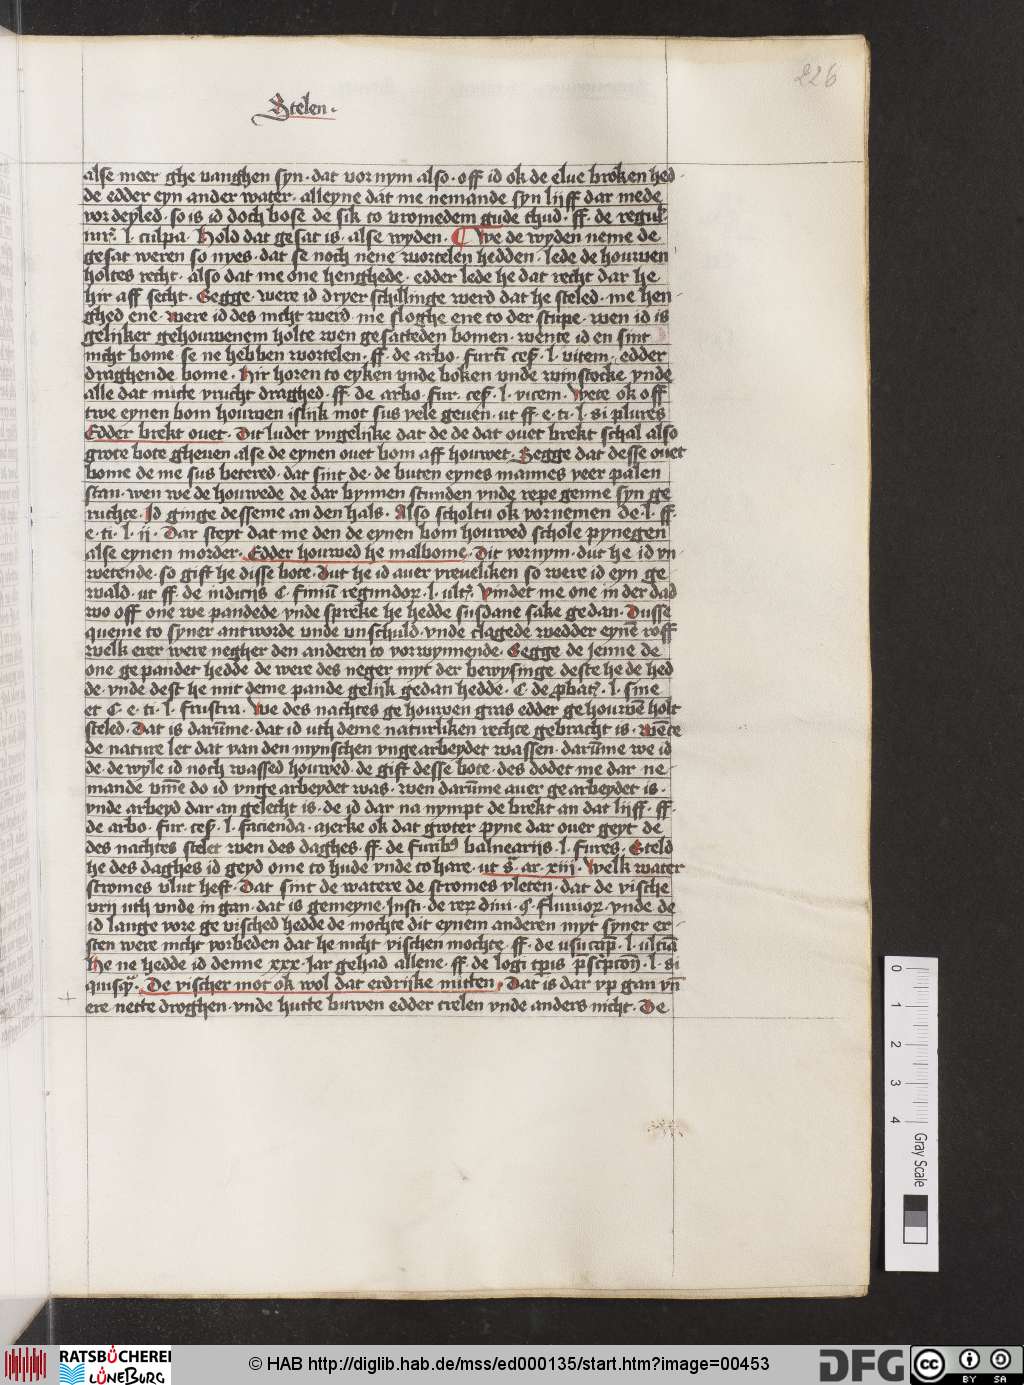 226
Stelen.
alse meer ghe vanghen syn. dat vor nym also. off id ok de elue broken hed
de edder eyn ander water. alleyne dat me nemande syn lijff dar mede
vordeyled. so is id doch bose de sik to vromedem gude thud. ff. de regul
iur. l. culpa. Hold dat gesat is. alse wyden. We de wyden neme de
gesat weren so nyes. dat se noch nene wortelen hedden. lede de houwen
holtes recht. also dat me one henghede. edder lede he dat recht dar he
hir aff secht. Segge. were id dryer schillinge werd dat he steled. me hen
ghed ene. were id des nicht werd. me sloghe ene to der stupe. wen id is
gelijker gehouwenem holte wen gesatteden bomen. wente id en sint
nicht bome se ne hebben wortelen. ff. de arbo. furti ces. l. vitem. edder
draghende bome. Hir horen to eyken vnde boken vnde winstocke vnde
alle dat nutte vrucht draghed. ff. de arbo. fur. ces. l. vicem. Wete ok off
twe eynen bom houwen islijk mot sus vele geuen. ut ff. e. ti. l. si plures
Edder brekt ouet. Dit ludet vngelijke dat de de dat ouet brekt schal also
grote bote gheuen alse de eynen ouet bom aff houwet. Segge dat desse ouet
bome de me sus betered. dat sint de. de buten eynes mannes veer palen
stan. wen we de houwede de dar bynnen stunden vnde repe genne syn ge
ruchte. Id ginge desseme an den hals. Also scholtu ok vornemen de. l. ff.
e. ti. l. ij. Dar steyt dat me den de eynen bom houwed schole pynegen
alse eynen morder. Edder houwed he malbome. Dit vornym. dut he id vn
wetende. so gift he disse bote. Dut he id auer vreueliken so were id eyn ge
wald. ut ff. de iudicijs C. finium regundor. l. ult. Vindet me one in der dad
wo off one we pandede vnde spreke he hedde susdane sake gedan. Dusse
queme to syner antworde vnde vnschuld. vnde clagede wedder eyne roff
welk erer were negher den anderen to vorwynnende. Segge de jenne de
one gepandet hedde de were des neger myt der bewysinge deste he de hed
de. vnde dest he mit deme pande gelijk gedan hedde. C. de probat. l. sine
et C. e. ti. l. frustra. We des nachtes gehouwen gras edder gehouwen holt
steled. Dat is darumme. dat id uth deme naturliken rechte gebracht is. wente
de nature let dat van den mynschen vngearbeydet wassen. darumme we id
de. de wyle id noch wassed houwed. de gift desse bote. des dodet me dar ne
mande vmme do id vnge arbeydet was. wen darumme auer gearbeydet is.
vnde arbeyd dar an gelecht is. de id dar na nympt de brekt an dat lijff. ff.
de arbo. fur. ces. l. facienda. Merke ok dat groter pyne dar ouer geyt de
des nachtes stelet wen des daghes. ff. de furibus balnearijs. l. fures. Steld
he des daghes id geyd ome to hude vnde to hare. ut s. ar. xiij. Welk water
stromes vlut heft. Dat sint de watere de stromes vleten. dat de vische
vrij uth vnde in gan. dat is gemeyne. Insti. de rer diui. §. fluuior. vnde de
id lange vore ge visched hedde de mochte dit eynem anderen myt syner er
sten were nicht vorbeden dat he nicht vischen mochte. ff. de usucap. l. ultia
He ne hedde id denne xxx. Jar gehad allene. ff. de logi tpis pscpton. l. si
quisq. De vischer mot ok wol dat erdrijke nutten. Dat is dar vp gan vn
ere nette droghen. vnde hutte buwen edder trelen vnde anders nicht. De
0 1 2 3 4
Gray Scale
RATSBÜCHEREI
LÜNEBURG
© HAB http://diglib.hab.de/mss/ed000135/start.htm?image=00453
DFG
cc BY SA